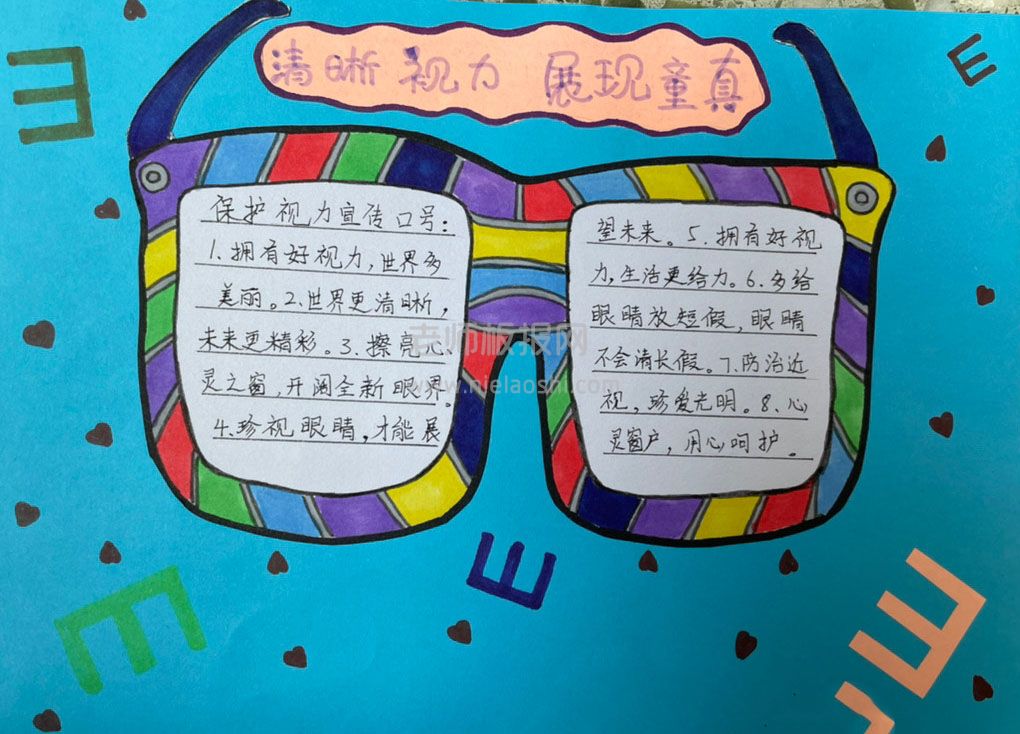 清晰视力 展现童真
保护视力宣传口号:
1.拥有好视力,世界多
美丽。2.世界更清晰,
未来更精彩。3.擦亮心
灵之窗,开阔全新眼界。
4.珍视眼睛,才能展
望未来。5.拥有好视
力,生活更给力。6.多给
眼睛放短假,眼睛
不会请长假。7.防治近
视,珍爱光明。8.心
灵窗户,用心呵护。
老师板报网
www.nielaoshi.com
E
E
E
E
E